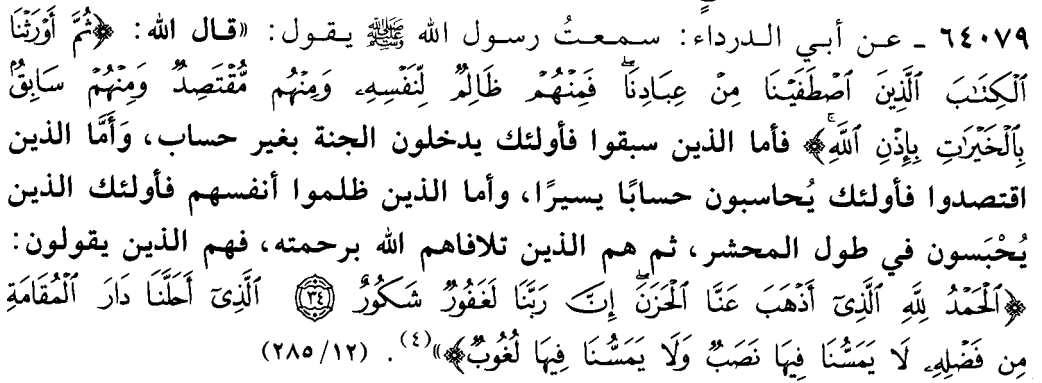 ٦٤٠٧٩ ـ عن أبي الدرداء: سمعتُ رسول الله ﷺ يقول: «قال الله: ﴿ثُمَّ أَوْرَثْنَا
ٱلْكِتَٰبَ ٱلَّذِينَ ٱصْطَفَيْنَا مِنْ عِبَادِنَاۖ فَمِنْهُمْ ظَالِمٌ لِّنَفْسِهِۦ وَمِنْهُم مُّقْتَصِدٌ وَمِنْهُمْ سَابِقٌۢ
بِٱلْخَيْرَٰتِ بِإِذْنِ ٱللَّهِۚ﴾ فأما الذين سبقوا فأولئك يدخلون الجنة بغير حساب، وَأَمَّا الذين
اقتصدوا فأولئك يُحاسبون حسابًا يسيرًا، وأما الذين ظلموا أنفسهم فأولئك الذين
يُحْبَسون في طول المحشر، ثم هم الذين تلافاهم الله برحمته، فهم الذين يقولون:
﴿ٱلْحَمْدُ لِلَّهِ ٱلَّذِىٓ أَذْهَبَ عَنَّا ٱلْحَزَنَۖ إِنَّ رَبَّنَا لَغَفُورٌ شَكُورٌ ۝٣٤ ٱلَّذِىٓ أَحَلَّنَا دَارَ ٱلْمُقَامَةِ
مِن فَضْلِهِۦ لَا يَمَسُّنَا فِيهَا نَصَبٌ وَلَا يَمَسُّنَا فِيهَا لُغُوبٌ﴾»(٤). (١٢/ ٢٨٥)